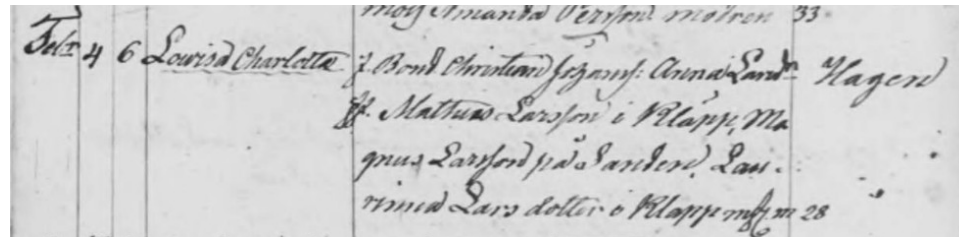 moy Amanda Persson modren 33
Febr 4 6 Lowisa Charlotta f. Bond Christian Johans: Anna Landn Hagen
ff. Mathias Larsson i Klapp, Ma
gnus Larsson på Sanden, Lau-
rinna Lars dotter i Klapp m 28